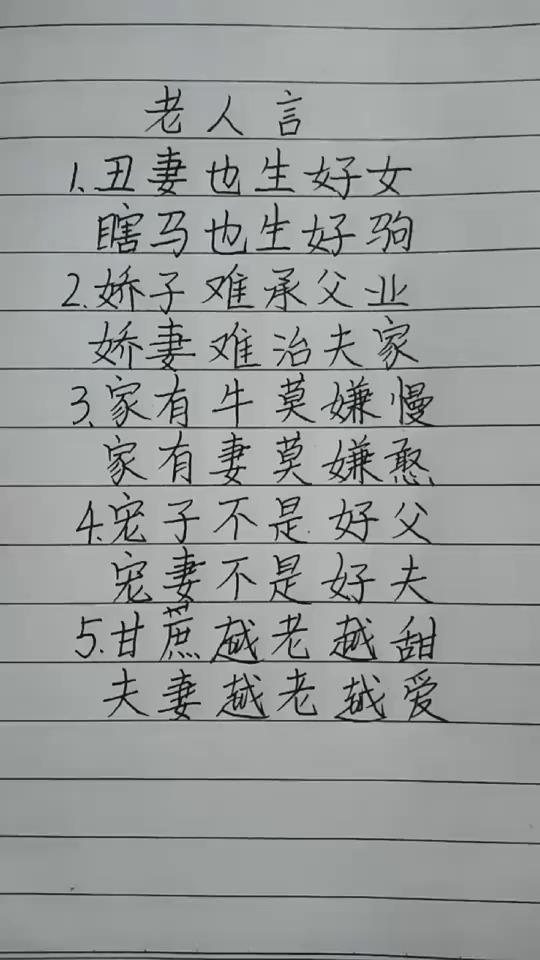 老人言
1.丑妻也生好女
瞎马也生好驹
2.娇子难承父业
娇妻难治夫家
3.家有牛莫嫌慢
家有妻莫嫌憨
4.宠子不是好父
宠妻不是好夫
5.甘蔗越老越甜
夫妻越老越爱